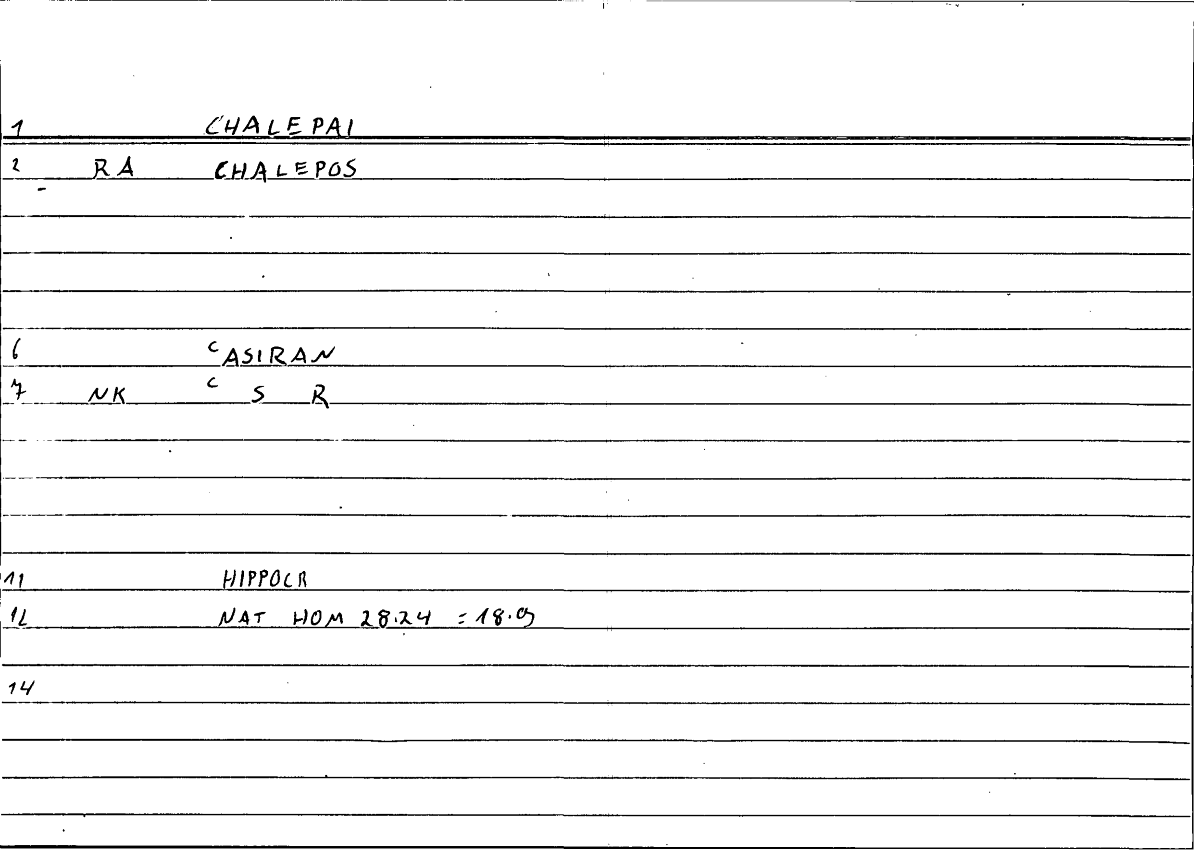 1 CHALEPAI
2 RA CHALEPOS
6 ᶜASIRAN
7 NK ᶜ S R
11 HIPPOCR
12 NAT HOM 28.24 = 18.9
14